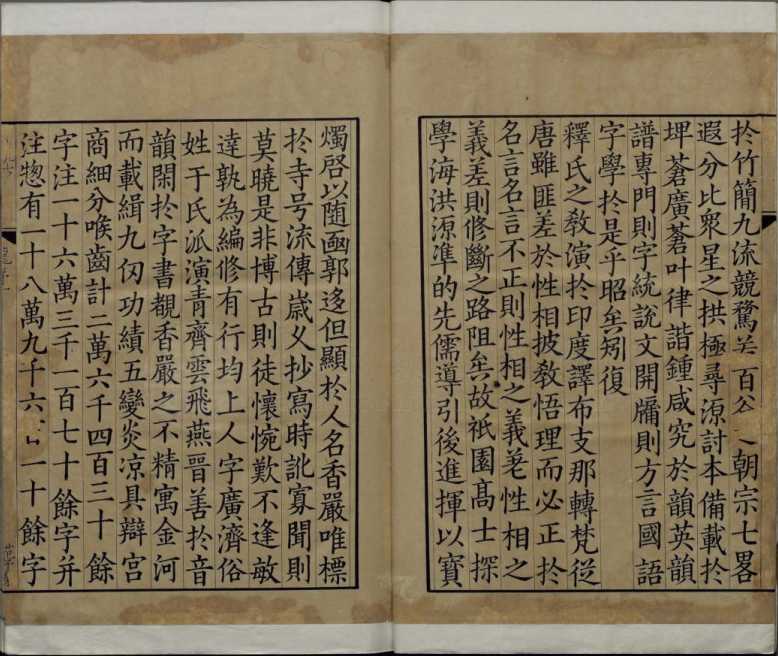 扵竹簡九流競騖〻百谷之朝宗七畧
遐分比衆星之拱極尋源討本備載扵
埤蒼廣蒼叶律諧鍾咸究於韻英韻
譜專門則字統說文開牖則方言國語
字學扵是乎昭矣矧復
釋氏之敎演扵印度譯布支那轉梵從
唐雖匪差於性相披敎悟理而必正扵
名言名言不正則性相之義差性相之
義差則修斷之路阻矣故祇園髙士探
學海洪源凖的先儒導引後進揮以寳
燭啓以随函郭迻但顯扵人名香嚴唯標
扵寺号流傳歲久抄寫時訛寡聞則
莫曉是非博古則徒懷惋歎不逢敏
達孰為編修有行均上人字廣濟俗
姓于氏派演青齊雲飛燕晉善扵音
韻閑扵字書覩香嚴之不精寓金河
而載緝九仞功績五變炎凉具辯宮
商細分喉齒計二萬六千四百三十餘
字注一十六萬三千一百七十餘字并
注惣有一十八萬九千六百一十餘字